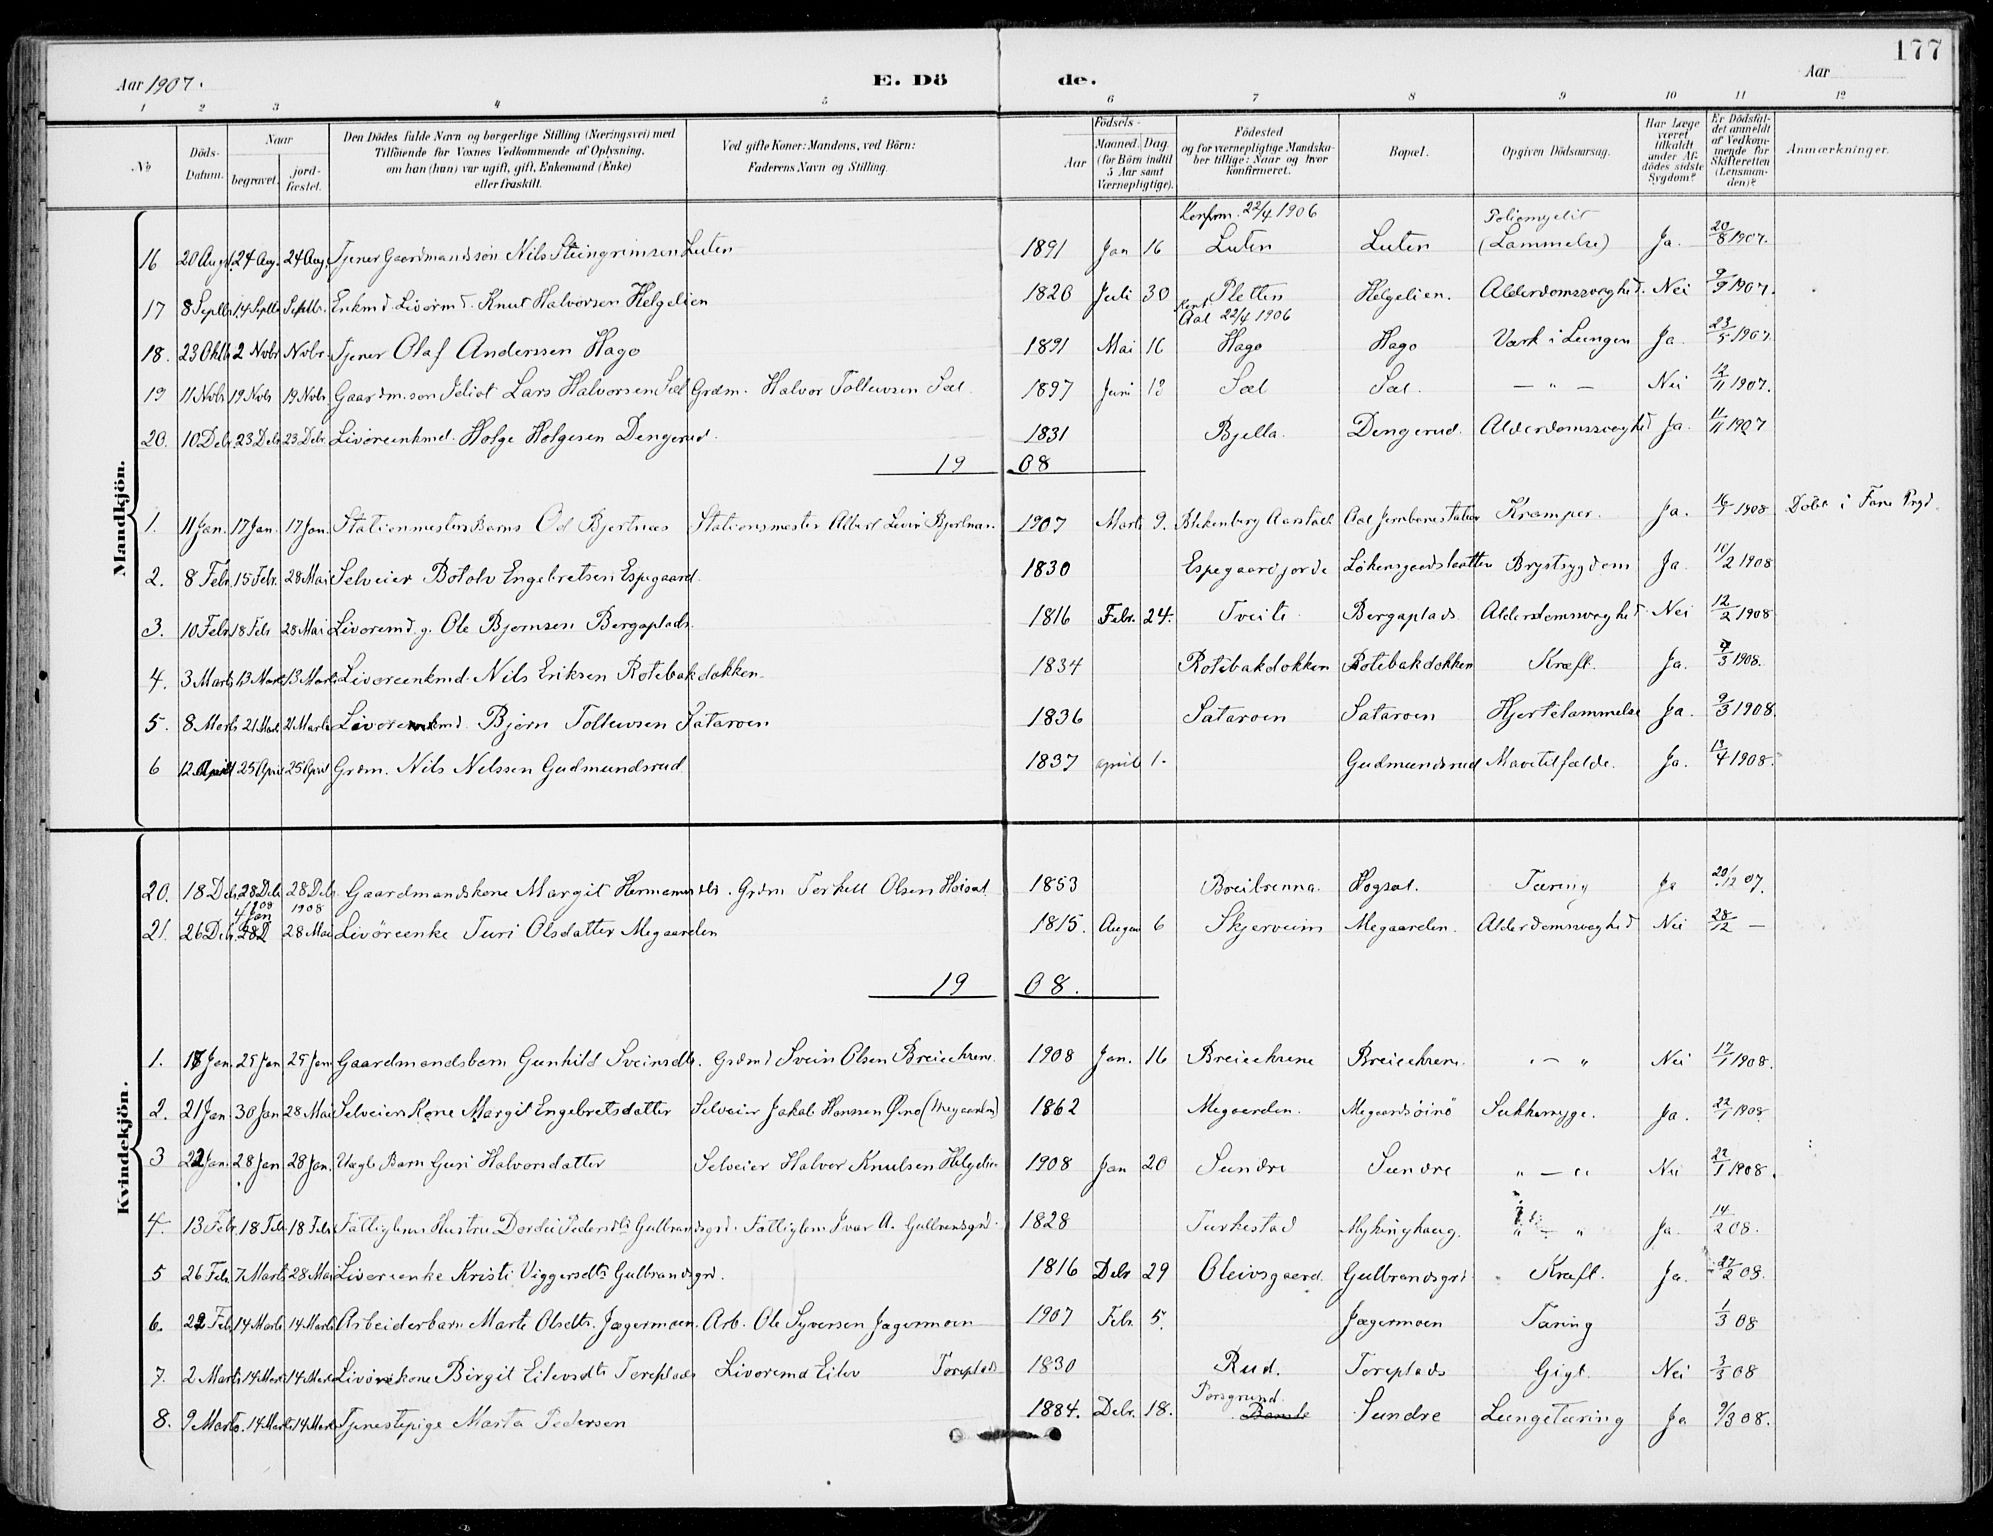 177
Aar 1907. E. Dö de. Aar
1 2 3 4 5 6 7 8 9 10 11 12
No Döds-Datum. Naar begravet. jord-fæstet. Den Dödes fulde Navn og borgerlige Stilling (Næringsvei) med Tilföiende for Voxnes Vedkommende af Oplysning, om han (hun) var ugift, gift, Enkemand (Enke) eller fraskilt. Ved gifte Koner: Mandens, ved Börn: Faderens Navn og Stilling. Födsels- Aar Maaned. Dag. (for Börn indtil 5 Aar samt Værnepligtige). Födested og for værnepligtige Mandskaber tillige: Naar og hvor konfirmeret. Bopæl. Opgiven Dödsaarsag. Har Læge været tilkaldt under Afdödes sidste Sygdom? Er Dödsfaldet anmeldt af Vedkommende for Skifteretten (Lensmanden)? Anmærkninger.
Mandkjön.
Konfirm. 22/4 1906 Poliomyelit
16 20 Aug. 24 Aug. 24 Aug. Tjener Gaardmandssön Nils Steingrimsen Luten 1891 Jan 16 Luten Luten (Lammelse) Ja. 20/8 1907.
17 8 Septbr 14 Septbr Septbr. Enkmd. Livörmd. Knut Halvorsen Helgelien 1820 Juli 30 Pletten Helgelien. Alderdomssvaghed. Nei 9/9 1907.
Konf Aal 22/4 1906
18. 23 Oktb 2 Novbr Novbr Tjener Olaf Anderssen Hago 1891 Mai 16 Hago Hago Værk i Lungen Ja. 23/5 1907.
19 11 Novb 19 Novb 19 Novb Gaardm.sön Idiot Lars Halvorsen Sæl Grdm. Halvor Tollevsen Sæl 1897 Juni 12 Sæl Sæl. — " — Nei 12/11 1907.
20. 10 Debr. 23 Debr 23 Debr Livöreenkmd. Holge Holgesen Dengerud. 1831 Bjella. Dengerud. Alderdomssvaghed Ja. 11/11 1907
19 08
1. 11 Jan. 17 Jan. 17 Jan. Stationmesters Barns Od Bjertnæs Stationsmester Albert Bjertnæs. 1907 Marts 9. Aarstad. Aal Jernbanestation Kramper. Ja. 16/1 1908 Döbt i Fane Prgd.
2. 8 Febr. 15 Febr. 28 Mai Selveier Botolv Engebretsen Espegaard. 1830 Espegaardjorde Lökensgaardslaatten Brystsygdom Ja. 10/2 1908
3. 10 Febr 18 Febr 28 Mai Livöremd. g. Ole Bjørnsen Bergaplads. 1816 Febr. 24. Tveito. Bergaplads Alderdomsvaghed Nei 12/2 1908
4. 3 Marts 13 Marts 13 Marts Livöreenkmd. Nils Eriksen Rotebakdokken 1834 Rotebakdokken Rotebakdokken Kræft. Ja. 7/3 1908.
5. 8 Marts 21 Marts 21 Marts Livöreenkmd. Bjørn Tollevsen Sataroen 1836 Sataroen Sataroen Hjertelammelse Ja. 9/3 1908.
6 12 April 25 April 25 April Grdm. Nils Nelssen Gudmundsrud 1837 april 1. Gudmundsrud Mavetilfælde. Ja. 13/4 1908.
Kvindekjön.
20. 18 Debr. 28 Debr 28 Debr. Gaardmandskone Margit Hermansdtr. Grdm Torkell Olsen Höisat 1853 Breibrenna. Hogsat. Tæring Ja 20/12 07.
1908 4 Jan 1908
21. 26 Debr. 28 D 28 Mai Livöreenke Turi Olsdatter Megaarden 1815. August 6 Skjerveim Megaarden. Alderdomsvaghed Nei 28/12 —
19 08.
1. 17 Jan. 25 Jan 25 Jan Gaardmandsbarn Gunhild Sveinsdtr. Grdmd Svein Olsen Breiechrene. 1908 Jan. 16 Breiechrene Breiechrene. . — " Nei 17/1 1908.
2. 21 Jan 30 Jan 28 Mai Selveiers Kone Margit Engebretsdatter Selveier Jakob Hanssen Öino (Megaarden) 1862 Megaarden. Megaardsöinö Sukkersyge. Ja. 22/1 1908.
3 22 Jan. 28 Jan 28 Jan. Uægte Barn Guri Halvorsdatter Selveier Halvor Knutsen Helgelien 1908 Jan 20 Sundre Sundre " — " Nei 22/1 1908.
4. 13 Febr. 18 Febr 18 Febr Fattiglems Hustru Dordei Pedersdtr Gulbrandsgrd. Fattiglem Ivar A. Gulbrandsgrd. 1828 Turkestad Mykinghaug. " — " Ja. 14/2 08.
5 26 Febr. 7 Marts 28 Mai Livöreenke Kristi Viggersdtr Gulbrandsgrd. 1816 Debr 29 Oleivsgaard. Gulbrandsgrd. Kræft. Ja. 27/2 08.
6. 22 Febr 14 Marts 14 Marts Arbeiderbarn Marte Olsdtr. Jægermoen. Arb. Ole Syversen Jægermoen 1907 Febr. 5. Jægermoen Tæring 1/3 08
7. 2 Marts 14 Marts 14 Marts Livörekone Birgit Eilevsdtr Toreplads Livöremd Eilev Toreplads 1830 Rud. Toreplads Gigt. Nei 3/3 08
Porsgrund.
8. 9 Marts. 14 Marts 14 Marts Tjenestepige Marta Pedersen 1884. Debr. 18. Bamle Sundre Lungetæring Ja 9/3 08.